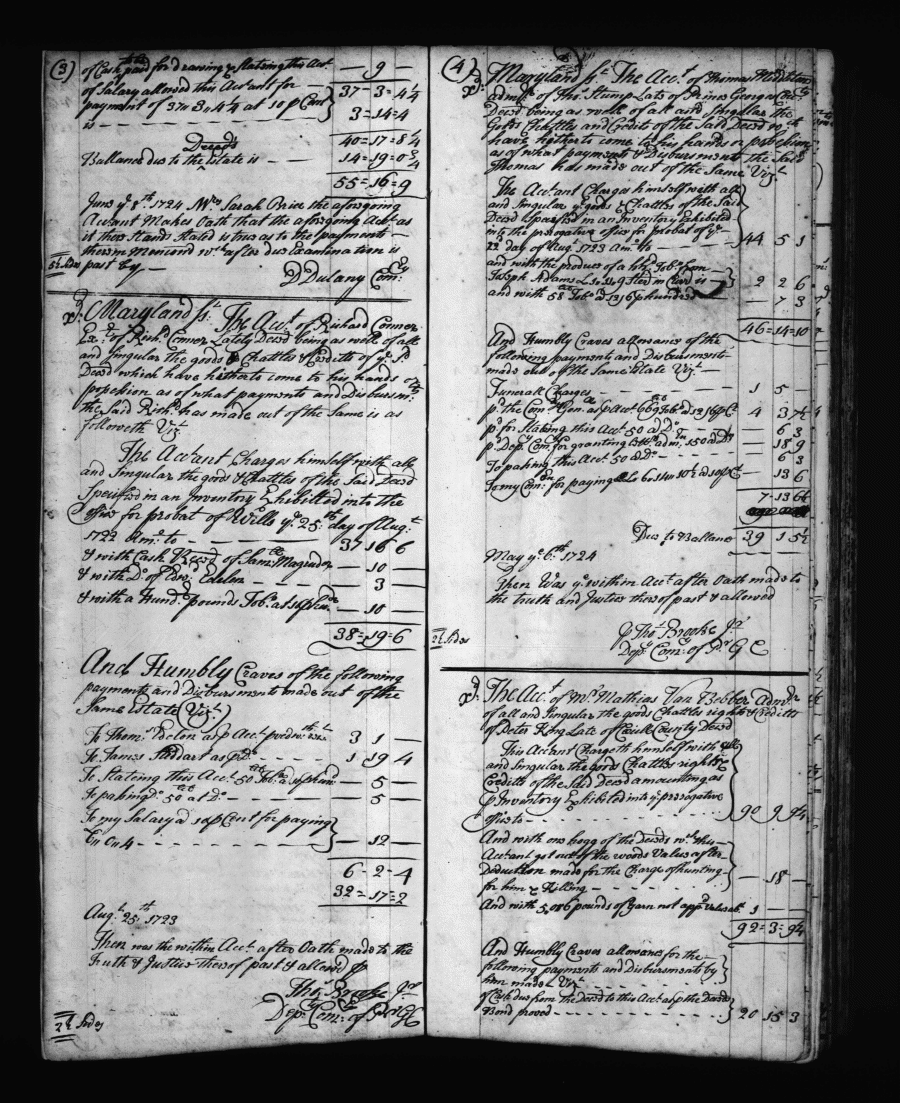 (3)
of Cash paid for drawing & Stateing this Acct — 9 —
of Salary allowed this Accant for
payment of 37 " 3 " 4¼ at 10 p Cent } 37 - 3 = 4¼
is - - - - 3 = 14 = 4
40 = 17 = 8¼
Deced's
Ballance due to the Estate is — — 14 = 19 = 0¾
55 = 16 = 9
June ye 8th 1724 Mrs Sarah Brice the aforegoing
Accant Makes Oath that the aforegoing Acct as
it there Stands Stated is true as to the payments
therein Mencond wch after due Examination is
past by —
D Dulany Comry
Sides
Maryland ss. The Acct of Richard Conner
Exr of Richd Conner Lately Deced being as well of all
and Singular the goods & Chattles & Creditts of ye sd
Deced which have hitherto come to his hands or
possession as of what payments and Disbursmts
the Said Richd has made out of the Same is as
followeth Vizt
The Accant Charges himself with all
and Singular the goods & Chattles of the Said Deced
Specified in an Inventory Exhibitted into the
office for probat of Wills ye 25th day of Augt
1722 Amo to — 37 16 6
& with Cash Reced of Saml Magruder — 10 —
& with Do of Edwd Edelen - - - — 3 —
& with a Hundd pounds Tobo at — 10 —
38 = 19 = 6
And Humbly Craves of the following
payments and Disbursments made out of the
Same Estate (Vizt)
To Thoms Edelen as p Acct 3 1 —
To James Haddart as p Do - - - 1 19 4
To Stateing this Acct 50 Tobo — 5 —
To passing Do 50 at Do - - - — 5 —
To my Salary a 10 p Cent for paying } — 12 —
6 - 2 - 4
32 = 17 = 2
Augt 25th 1723
Then was the within Acct after Oath made to the
Truth & Justice thereof past & allowed p
Thos Brooke Junr
Depty Comry of Pr Geo Co
2½ Sides
(4)
Maryland ss. The Acct of Thomas Middleton
admr of Thos Stump Late of Prince Georges County
Deced being as well of all and Singular the
Goods Chattles and Credits of the Said Deced wch
have hitherto come to his hands or possession
as of what payments & Disbursments the Said
Thomas has made out of the Same Vizt
The Accant Charges himself with all
and Singular ye goods & Chattles of the Said
Deced Specified in an Inventory Exhibited
into the prerogative office for probat of ye
22 day of Augt 1723 Amo to — } 44 5 1
and with the produce of a hhd Tobo from
Joseph Adams } 2 2 6
and with 58 Tobo — 7 3
46 = 14 = 10
And Humbly Craves allowance of the
following payments and Disbursments
made out of the Same Estate Vizt
Funerall Charges — 1 5 —
pd the Comry Genl as p Acct 669 Tobo 4 3 7½
pd for Stateing this Acct 50 a Do — 6 3
pd Depty Comry for granting Letts of admn 150 a Do — 18 9
To passing this Acct 50 a Do — — 6 3
To my Com for paying — 13 6
7 - 13
Due to Ballance 39 1 5½
May ye 6th 1724
Then was ye within Acct after Oath made to
the truth and Justice thereof past & allowed
p Thos Brooke Jr
Depy Comry of Pr G C
2½ Sides
The Acct of Mr Mathias Van Bebber Admr
of all and Singular the goods Chattles rights & Creditts
of Peter King Late of Cecill County Deced
This Accant Chargeth himself with all
and Singular the goods Chattles rights &
Creditts of the Said Deced amounting as
p Inventory Exhibited into ye prerogative
office to — } 90 9 9¼
And with one hogg of the Deceds wch this
Accant got out of the woods Valued after
Deduction made for the Charge of hunting
for him & Killing - - - } — 18 —
And with 5, 016 pounds of Yarn not appd Valued at 1 —
92 = 3 = 9¼
And Humbly Craves allowance for the
following payments and Disbursments by
him made Vizt
of Cash due from the Deced to this Acct as p the Deceds
Bond proved - - - } 20 15 3